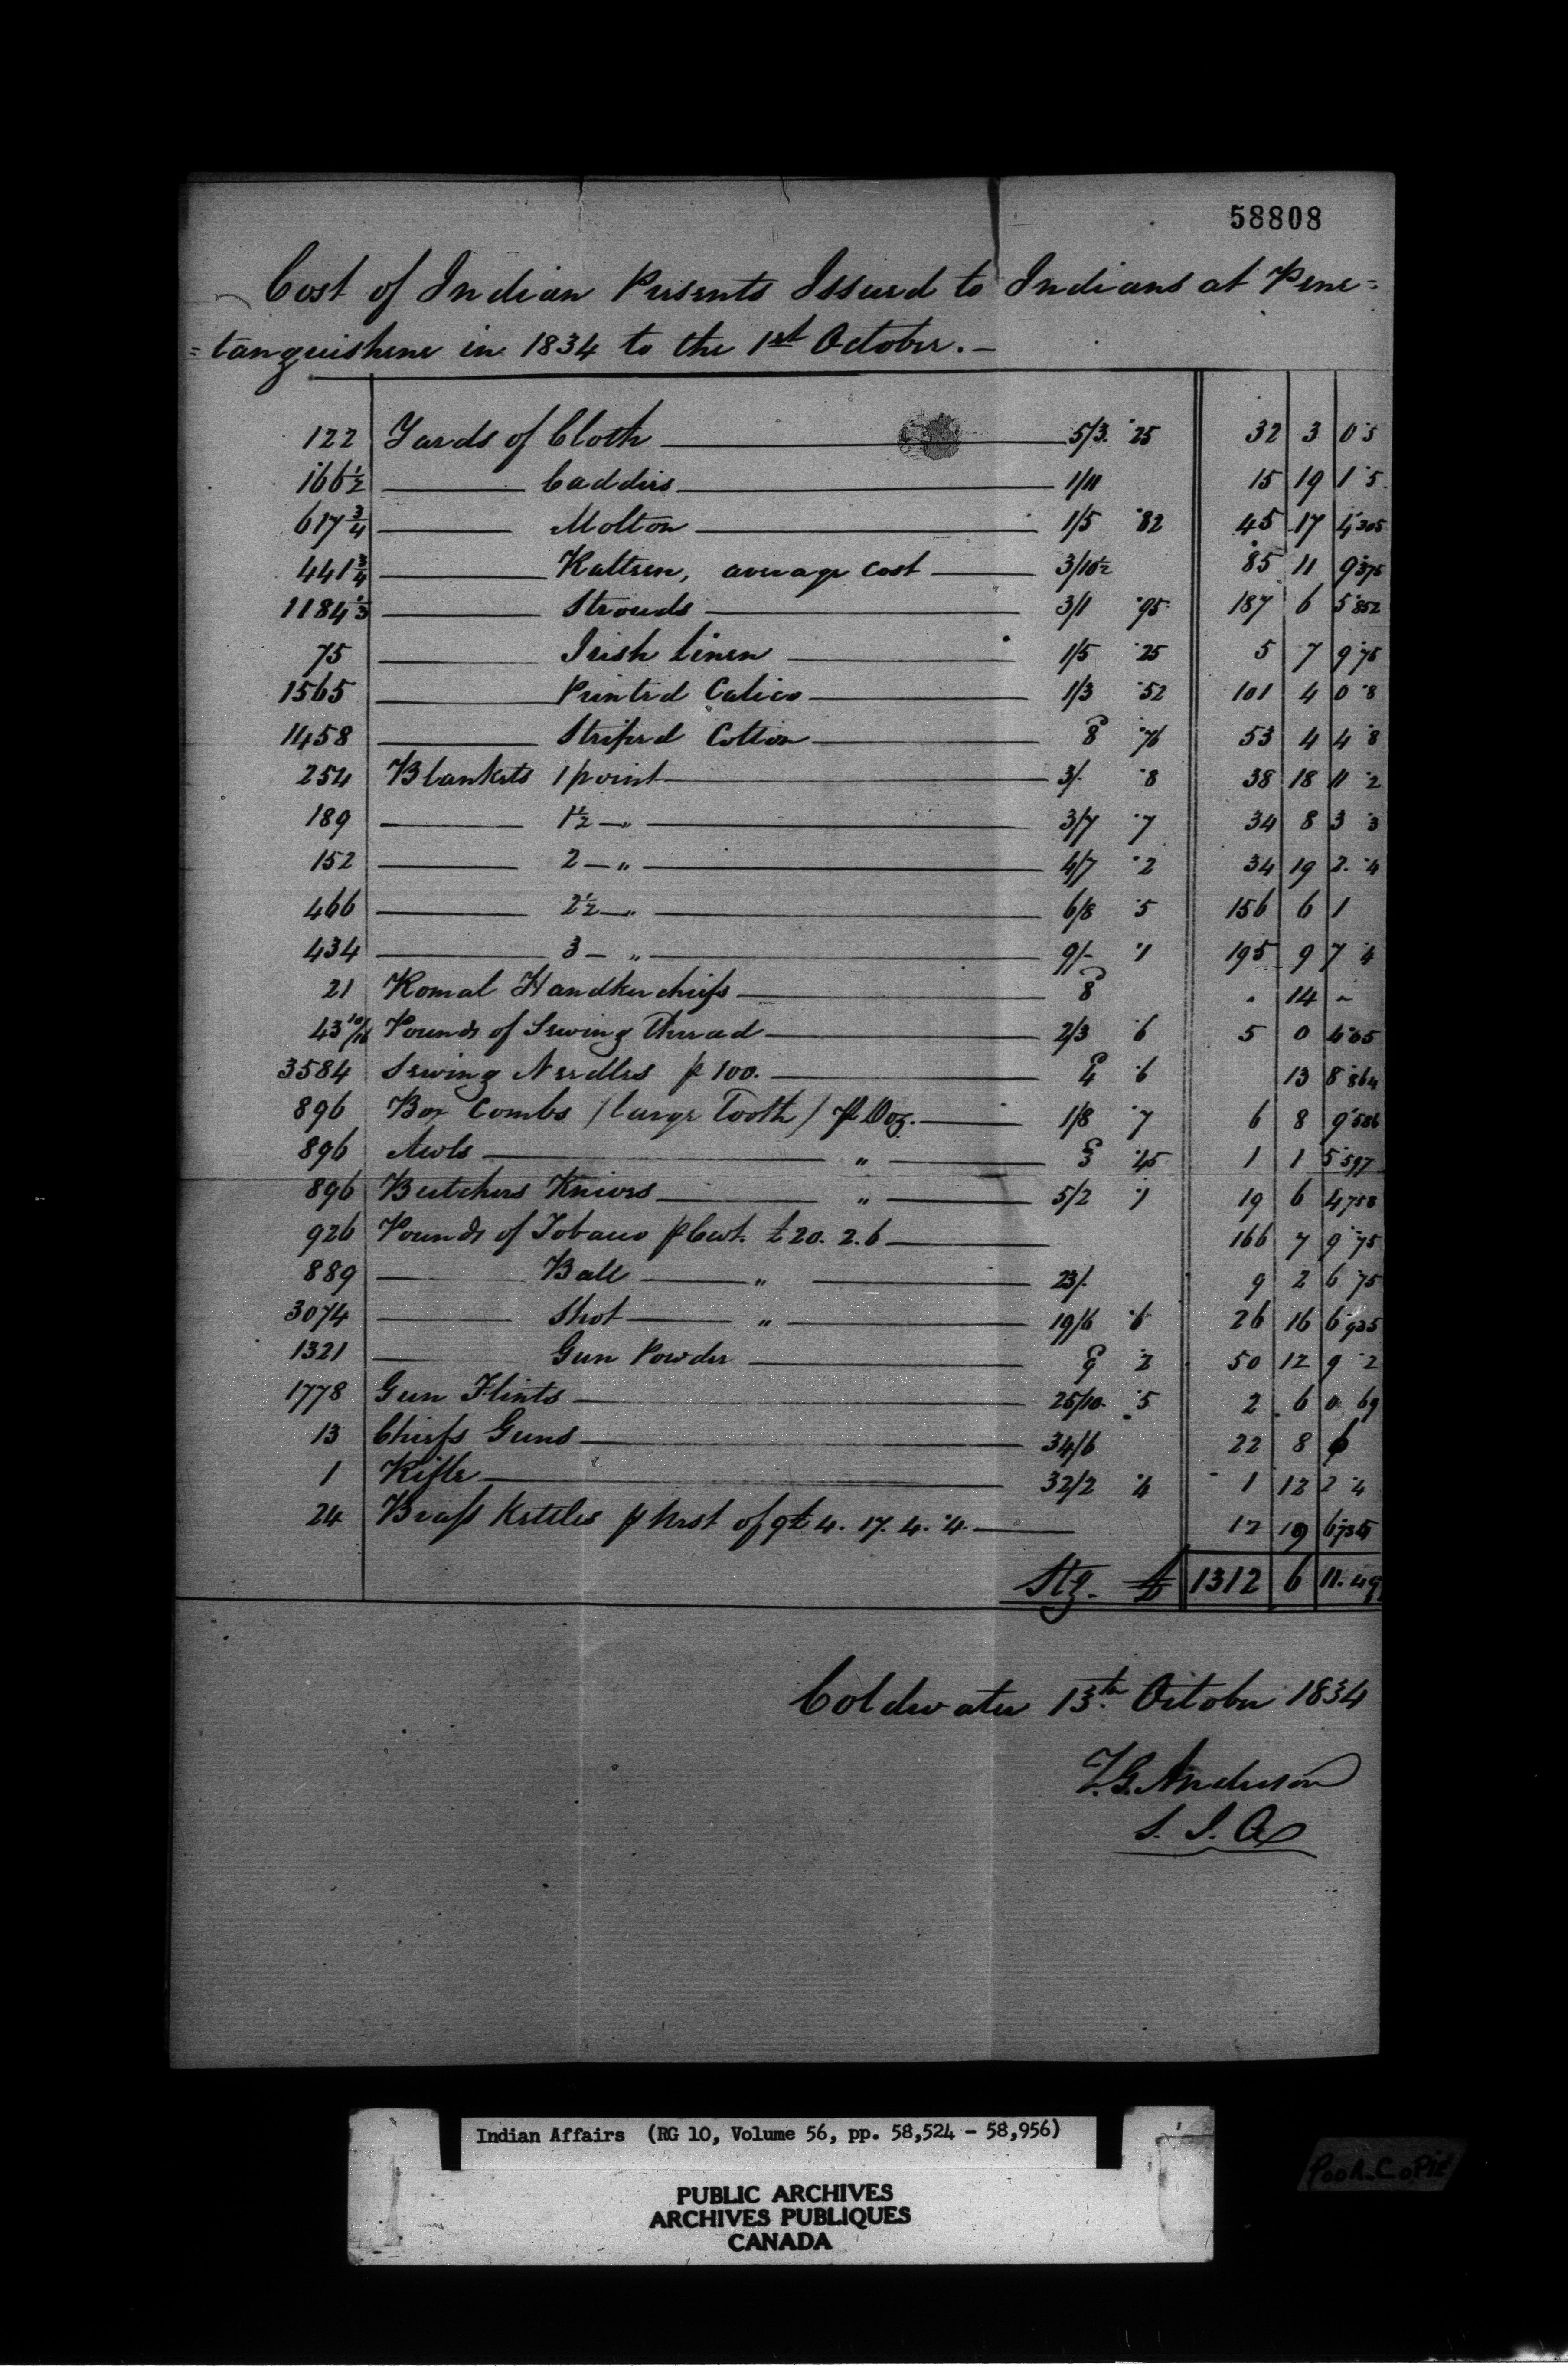 58808
Cost of Indian Presents Issued to Indians at Pene=
=tanguishene in 1834 to the 1st October.—
122 Yards of Cloth 5/3. ·25 32 3 0·5
166½ Caddies 1/11 15 19 1·5
617¾ Molton 1/5 ·82 45 17 4·305
441¾ Ratteen, average cost 3/10½ 85 11 9·375
1184⅓ Strouds 3/1 ·95 187 6 5·852
75 Irish Linen 1/5 ·25 5 7 9·75
1565 Printed Calico 1/3 ·52 101 4 0·8
1458 Striped Cotton 8d ·76 53 4 4·8
254 Blankets 1 point 3/. ·8 38 18 11·2
189 1½ — „ 3/7 ·7 34 8 3·3
152 2 — „ 4/7 ·2 34 19 2·4
466 2½ — „ 6/8 ·5 156 6 1
434 3 — „ 9/- ·1 195 9 7·4
21 Romal Handkerchiefs 8d 14 -
43 10/16 Pounds of Sewing Thread 2/3 ·6 5 0 4·05
3584 Sewing Needles p 100. 4d ·6 13 8·864
896 Box Combs (large Tooth) p Doz. 1/8 ·7 6 8 9·586
896 Awls „ 3d ·45 1 1 5·597
896 Butchers Knives „ 5/2 ·1 19 6 4·758
926 Pounds of Tobacco p Cwt. £20. 2. 6 166 7 9·75
889 Ball „ 23/. 9 2 6·75
3074 Shot „ 19/6 ·6 26 16 6·925
1321 Gun Powder 9d ·2 50 12 9·2
1778 Gun Flints 25/10. ·5 2 6 0·69
13 Chiefs Guns 34/6 22 8 6
1 Rifle 32/2 ·4 1 12 2·4
24 Brass Kettles p Nest of 9 £4. 17. 4. ·4 12 19 6·735
Stg. £ 1312 6 11·49
Coldwater 13th. October 1834
T. G. Anderson
S. I. A
Indian Affairs (RG 10, Volume 56, pp. 58,524 - 58,956)
PUBLIC ARCHIVES
ARCHIVES PUBLIQUES
CANADA
POOR COPIE